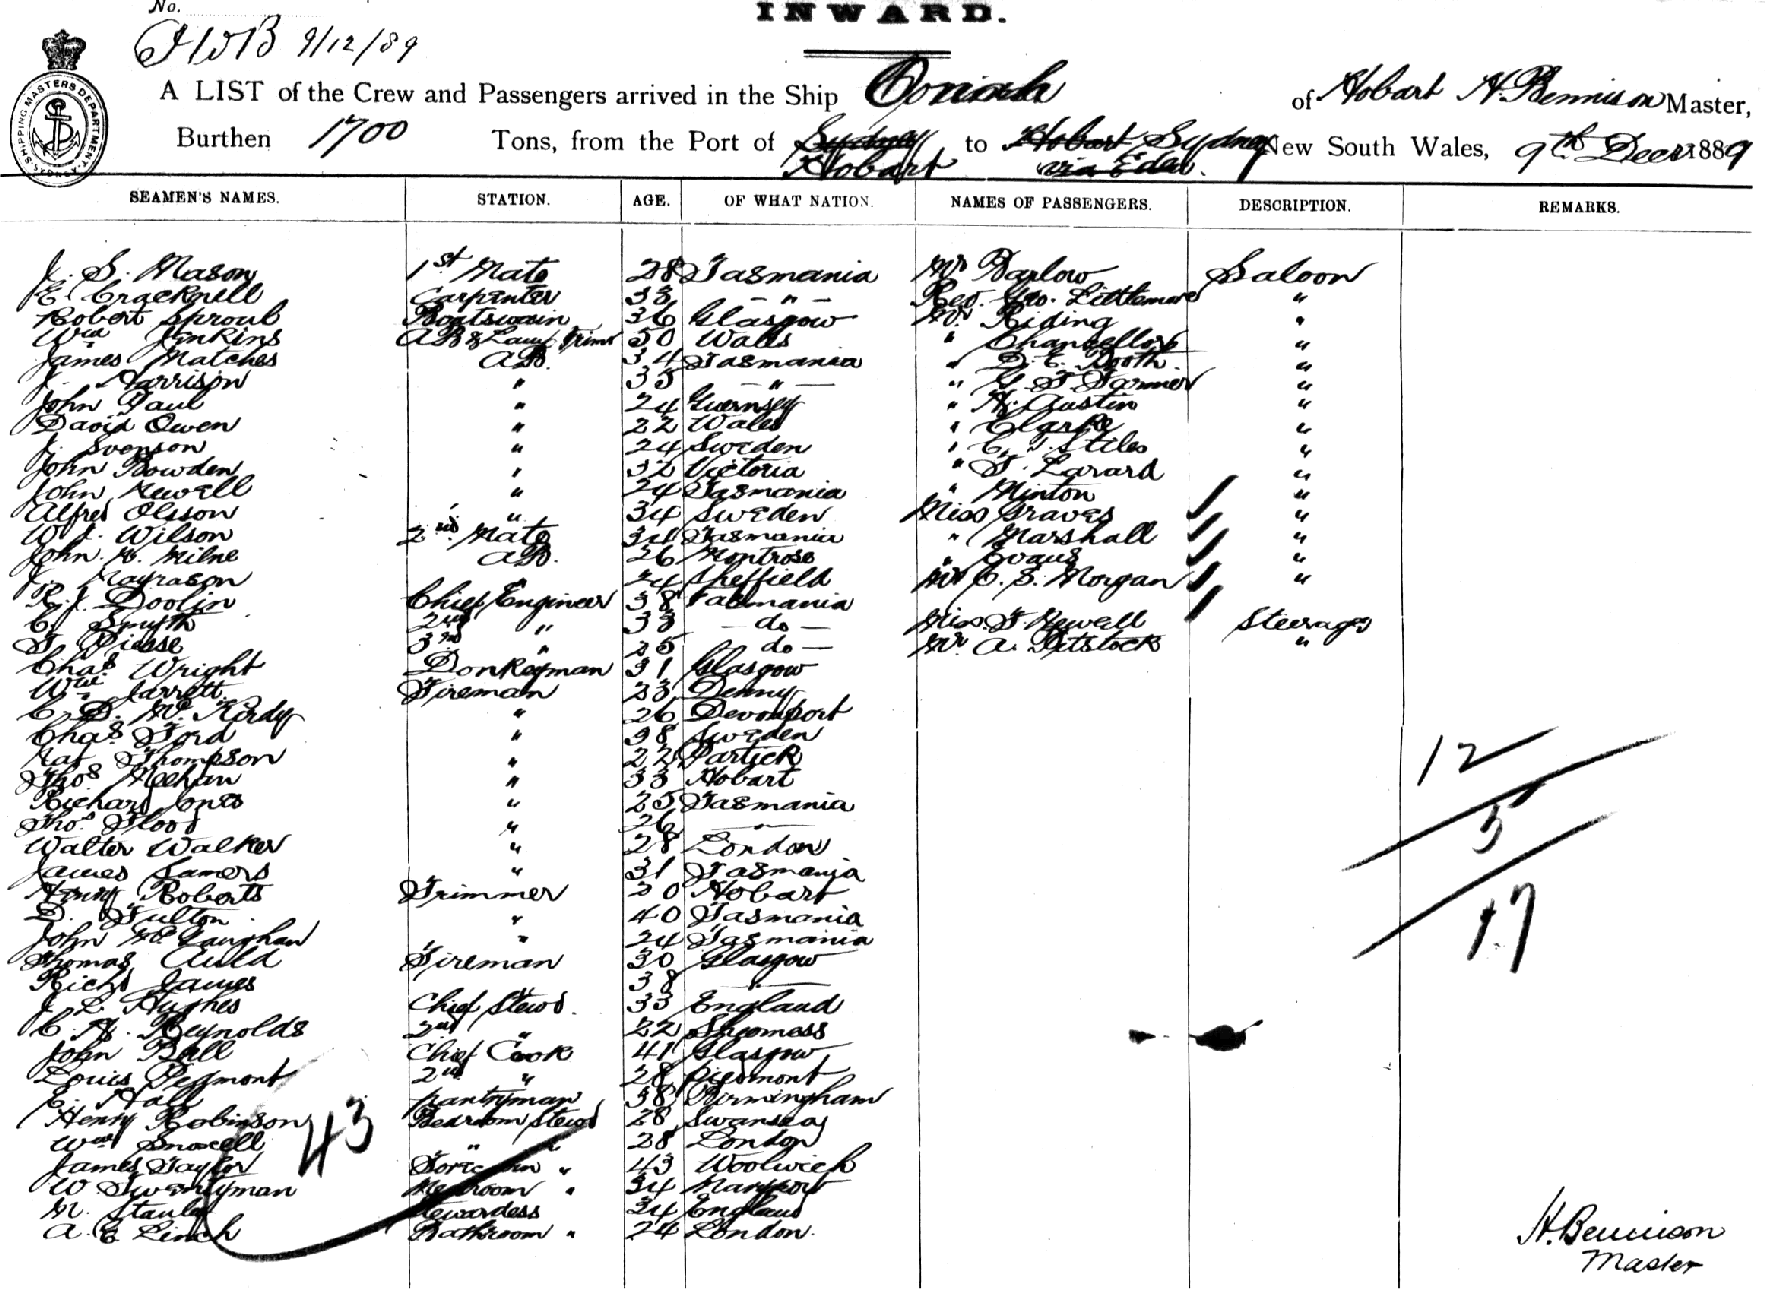 No.
INWARD.
9/12/89
SHIPPING MASTERS DEPARTMENT. SYDNEY
A LIST of the Crew and Passengers arrived in the Ship Oonah of Hobart H. Bennison Master,
Burthen 1700 Tons, from the Port of Sydney Hobart to Hobart Sydney via Eden New South Wales, 9th Decr 1889
SEAMEN'S NAMES. STATION. AGE. OF WHAT NATION. NAMES OF PASSENGERS. DESCRIPTION. REMARKS.
J. S. Mason 1st Mate 28 Tasmania Mr Barlow Saloon
E. Cracknell Carpenter 33 — " — Rev. Geo. Littlemore "
Robert Sproul Boatswain 36 Glasgow Mr Riding "
Wm Jenkins AB & Lamp Trimr 50 Wales " Chancellor "
James Matches AB. 34 Tasmania " D. E. Booth "
J. Harrison " 35 — " — " G. F. Farmer "
John Paul " 24 Guernsey " H. Austin "
David Owen " 22 Wales " Clarke "
J. Svenson " 24 Sweden " C. T. Stiles "
John Bowden " 32 Victoria " S. Larard "
John Newell " 24 Tasmania " Minton "
Alfred Olsson " 34 Sweden Miss Graves "
W. J. Wilson 2nd Mate 31 Tasmania " Marshall "
John H. Milne AB. 26 Montrose " Evans "
J. " 24 Sheffield Mr C. S. Morgan "
R. J. Doolin Chief Engineer 38 Tasmania
C. Smyth 2nd " 33 — do — Miss F. Newell Steerage
T. 3rd " 25 do — Mr A. Pitstock "
Chas Wright Donkeyman 31 Glasgow
Wm Jarrett Fireman 23 Denny
C. D. McKirdy " 26 Devonport
Chas Ford " 38 Sweden
Nat Thompson " 22 Partick
Thos Meehan " 33 Hobart
Richard Jones " 25 Tasmania
Thos Flood " 26 — " —
Walter Walker " 28 London
James Samers " 31 Tasmania
Henry Roberts Trimmer 20 Hobart
D. Fulton " 40 Tasmania
John McGaughan " 24 Tasmania
Thomas Auld Fireman 30 Glasgow
Richd James " 38 — " —
J. L. Hughes Chief Stewd. 33 England
C. H. Reynolds 2nd " 22 Sheerness
John Bell Chief Cook 41 Glasgow
Louis Pegmont 2nd " 28 Piedmont
E. Hall Pantryman 38 Birmingham
Henry Robinson Bedroom Stewd 28 Swansea
Wm Snoxell " " 28 London
James Taylor Forecabin " 43 Woolwich
W Swentyman Messroom " 34 Maryport
M. Stanley Stewardess 34 England
A. E. Linch Bathroom " 24 London.
43
12
5
17
H. Bennison
Master